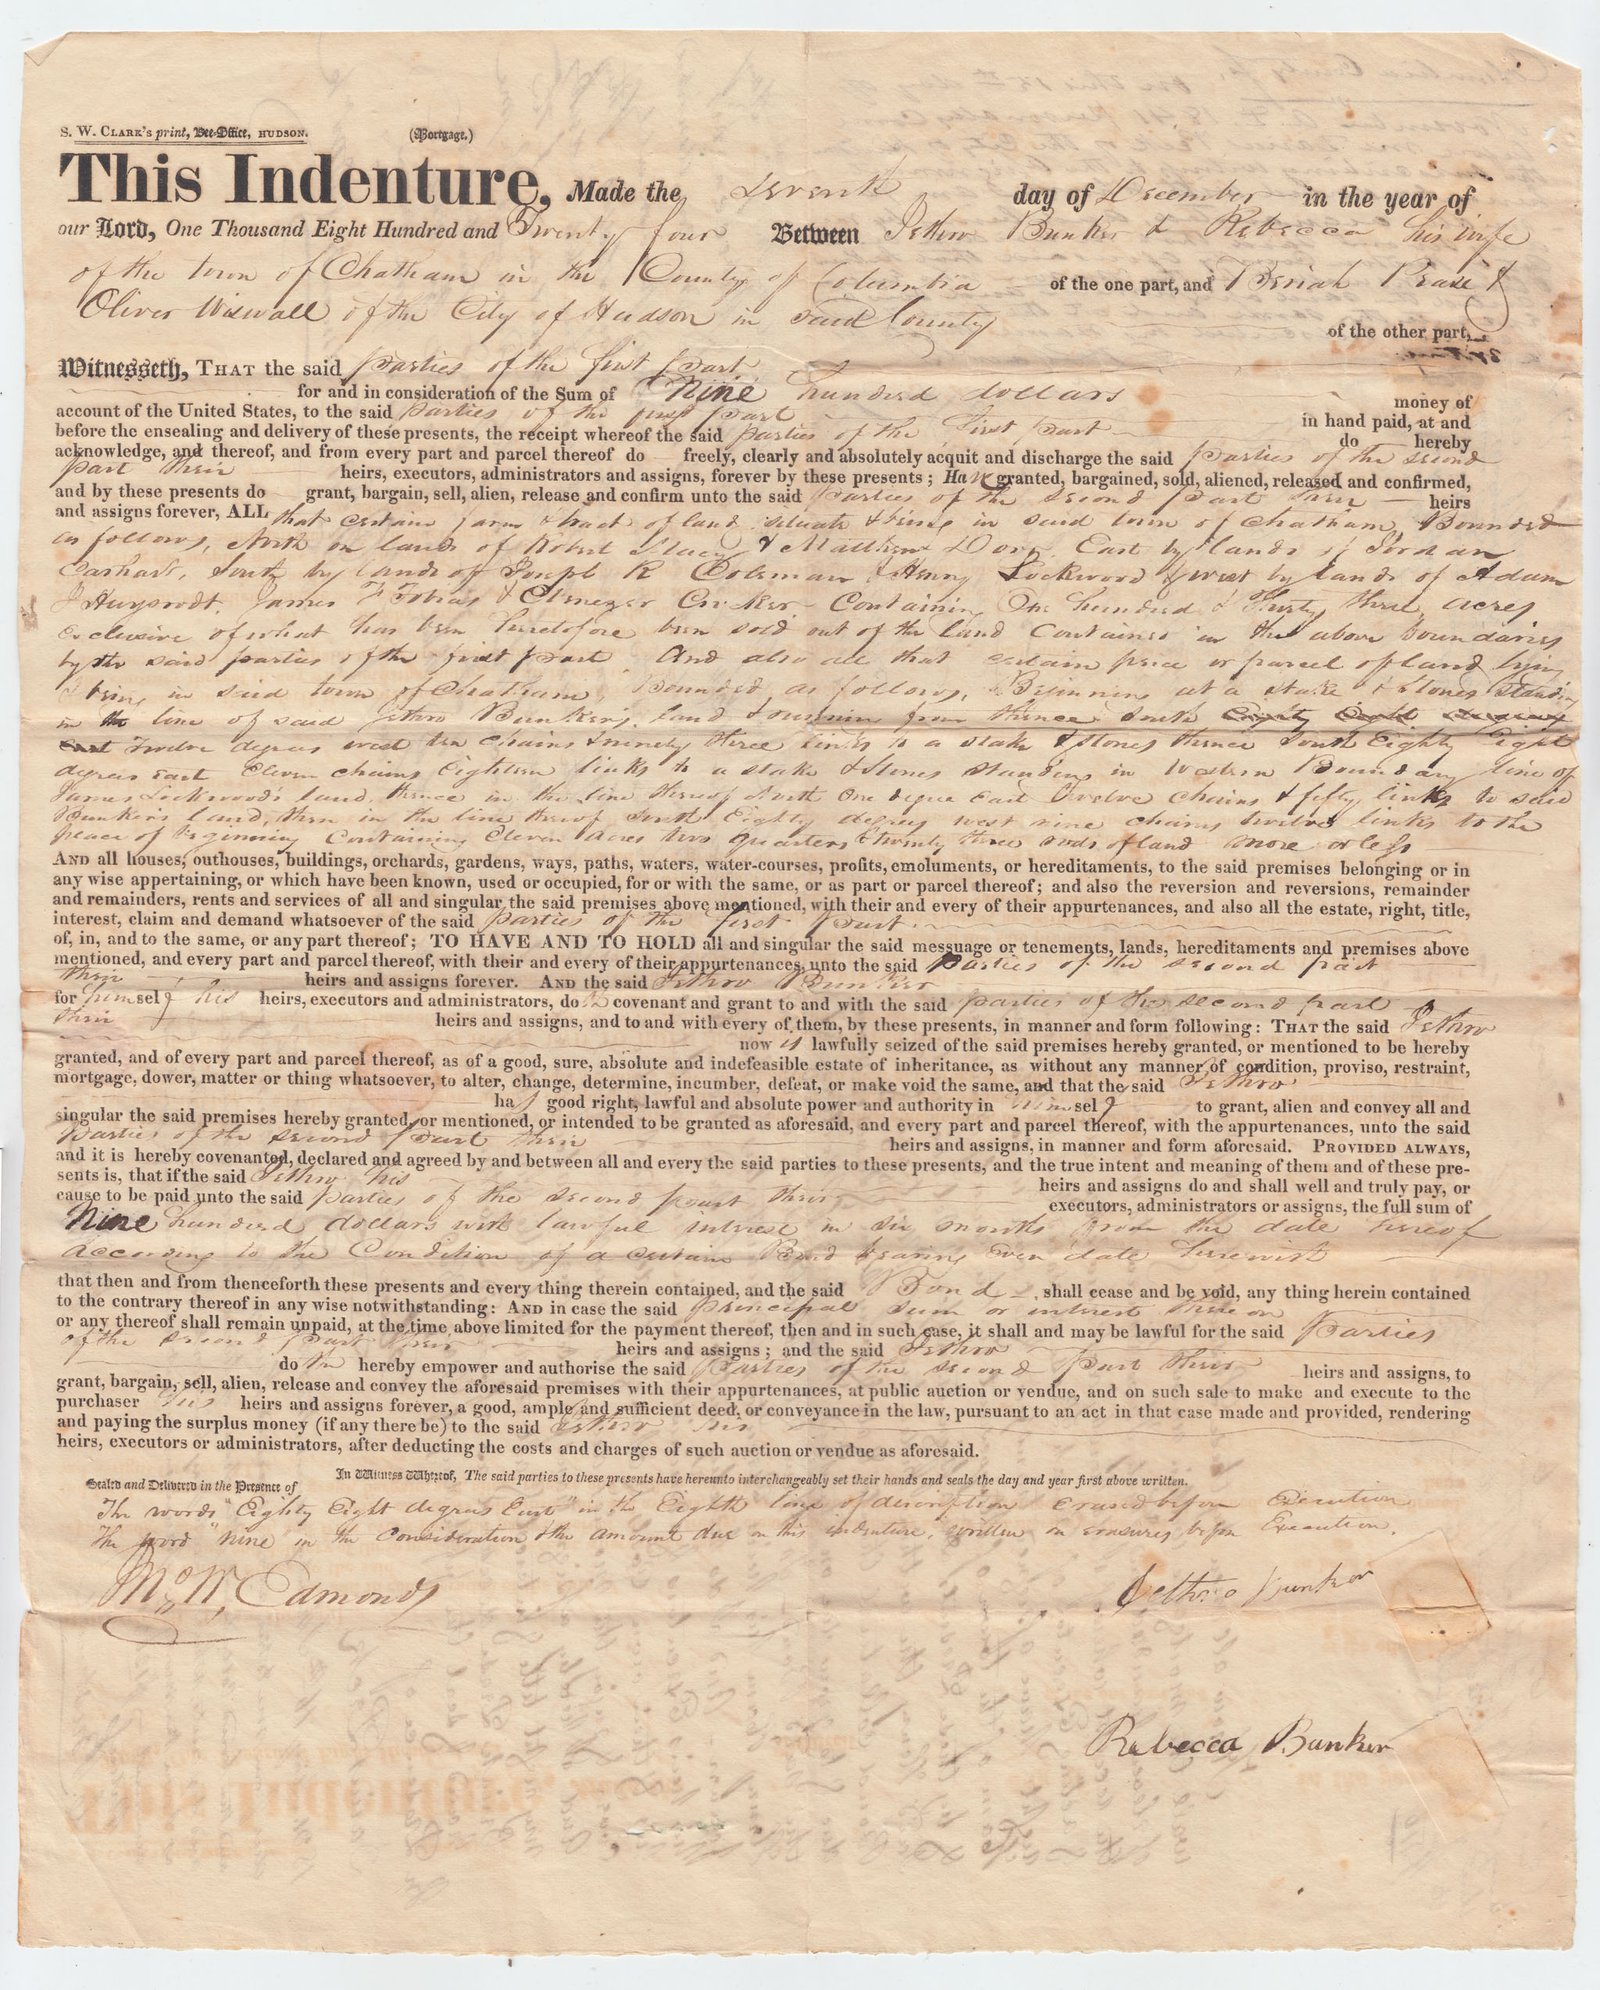 S. W. CLARK'S print, Bee-Office, HUDSON. (Mortgage.)
This Indenture, Made the seventh day of December in the year of
our Lord, One Thousand Eight Hundred and Twenty four Between Jethro Bunker & Rebecca his wife
of the town of Chatham in the County of Columbia of the one part, and Beriah Pease &
Oliver Wiswall of the City of Hudson in said County of the other part,
Witnesseth, THAT the said parties of the first part
for and in consideration of the Sum of Nine hundred dollars money of
account of the United States, to the said parties of the first part in hand paid, at and
before the ensealing and delivery of these presents, the receipt whereof the said parties of the first part do hereby
acknowledge, and thereof, and from every part and parcel thereof do freely, clearly and absolutely acquit and discharge the said parties of the second
part their heirs, executors, administrators and assigns, forever by these presents; Have granted, bargained, sold, aliened, released and confirmed,
and by these presents do grant, bargain, sell, alien, release and confirm unto the said parties of the second part their heirs
and assigns forever, ALL that certain farm & tract of land situate & being in said town of Chatham, Bounded
as follows, North on lands of Robert & Matthew Dorr, East by lands of Jordan
Carhart, South by lands of Joseph R Coleman & Henry Lockwood & west by lands of Adam
J Huysrodt, James F Tobias & Ebenezer Crocker Containing One hundred & Thirty three acres
exclusive of what has been heretofore been sold out of the land contained in the above boundaries
by the said parties of the first part And also all that certain piece or parcel of land lying
& being in said town of Chatham, Bounded as follows, Beginning at a stake & stones standing
in the line of said Jethro Bunker's land & running from thence South Eighty Eight degrees
East Twelve degrees west ten chains & ninety three links to a stake & stones thence South Eighty Eight
degrees East Eleven chains Eighteen links to a stake & stones standing in Western Boundary line of
James Lockwood's land, thence in the line thereof North One degree East Twelve chains & fifty links to said
Bunkers land, then in the line thereof South Eighty degrees west nine chains twelve links to the
place of Beginning Containing Eleven acres two quarters & twenty three rods of land more or less
AND all houses, outhouses, buildings, orchards, gardens, ways, paths, waters, water-courses, profits, emoluments, or hereditaments, to the said premises belonging or in
any wise appertaining, or which have been known, used or occupied, for or with the same, or as part or parcel thereof; and also the reversion and reversions, remainder
and remainders, rents and services of all and singular the said premises above mentioned, with their and every of their appurtenances, and also all the estate, right, title,
interest, claim and demand whatsoever of the said parties of the first part
of, in, and to the same, or any part thereof; TO HAVE AND TO HOLD all and singular the said messuage or tenements, lands, hereditaments and premises above
mentioned, and every part and parcel thereof, with their and every of their appurtenances, unto the said parties of the second part
their heirs and assigns forever. AND the said Jethro Bunker
for himself his heirs, executors and administrators, doth covenant and grant to and with the said parties of the second part
their heirs and assigns, and to and with every of them, by these presents, in manner and form following: THAT the said Jethro
now is lawfully seized of the said premises hereby granted, or mentioned to be hereby
granted, and of every part and parcel thereof, as of a good, sure, absolute and indefeasible estate of inheritance, as without any manner of condition, proviso, restraint,
mortgage, dower, matter or thing whatsoever, to alter, change, determine, incumber, defeat, or make void the same, and that the said Jethro
has good right, lawful and absolute power and authority in himself to grant, alien and convey all and
singular the said premises hereby granted, or mentioned, or intended to be granted as aforesaid, and every part and parcel thereof, with the appurtenances, unto the said
parties of the second part their heirs and assigns, in manner and form aforesaid. PROVIDED ALWAYS,
and it is hereby covenanted, declared and agreed by and between all and every the said parties to these presents, and the true intent and meaning of them and of these pre-
sents is, that if the said Jethro his heirs and assigns do and shall well and truly pay, or
cause to be paid unto the said parties of the second part their executors, administrators or assigns, the full sum of
Nine hundred dollars with lawful interest in six months from the date hereof
according to the Condition of a certain Bond bearing even date herewith
that then and from thenceforth these presents and every thing therein contained, and the said Bond shall cease and be void, any thing herein contained
to the contrary thereof in any wise notwithstanding: AND in case the said principal sum or interest there on
or any thereof shall remain unpaid, at the time above limited for the payment thereof, then and in such case, it shall and may be lawful for the said parties
of the second part their heirs and assigns; and the said Jethro
doth hereby empower and authorise the said parties of the second part their heirs and assigns, to
grant, bargain, sell, alien, release and convey the aforesaid premises with their appurtenances, at public auction or vendue, and on such sale to make and execute to the
purchaser his heirs and assigns forever, a good, ample and sufficient deed, or conveyance in the law, pursuant to an act in that case made and provided, rendering
and paying the surplus money (if any there be) to the said Jethro his
heirs, executors or administrators, after deducting the costs and charges of such auction or vendue as aforesaid.
In Witness Whereof, The said parties to these presents have hereunto interchangeably set their hands and seals the day and year first above written.
Sealed and Delivered in the Presence of
The words "Eighty Eight degrees East" in the Eighth line of discription erased before Execution
The word "nine" in the consideration & the amount due on this indenture, written on erasures before Execution.
Mo. W. Edmonds Jethro Bunker
Rebecca Bunker